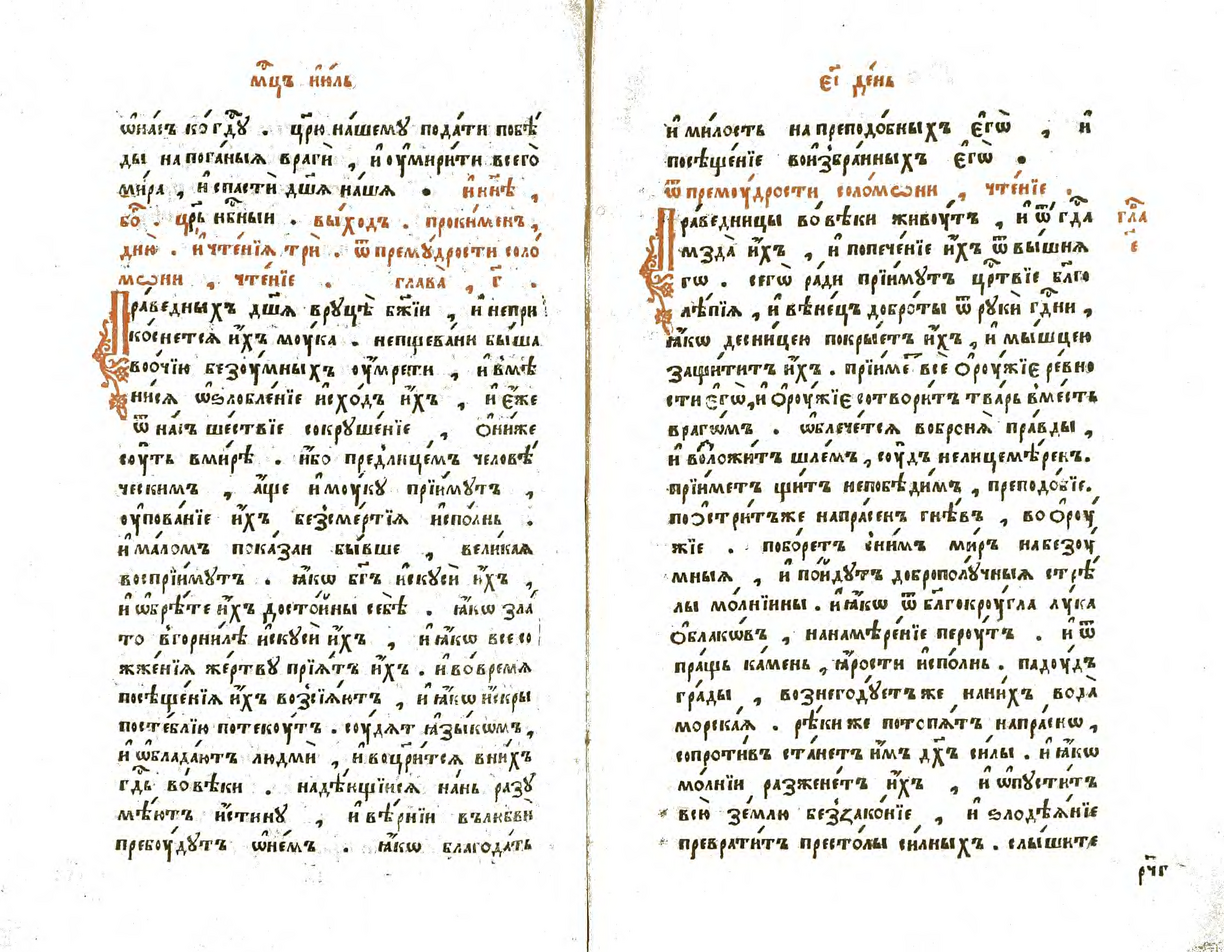 мц҃ъ и҆ю́ль
ѡ҆на́съ ко́ гдⷭ҇ꙋ . цр҃ю на́шемꙋ пода́ти побѣ́
ды на пога́ныѧ врагѝ , и҆ оу҆мири́ти всего̀
ми́ра , и҆ спастѝ дш҃ѧ на́шѧ . и҆ нн҃ѣ ,
бо҃ . цр҃ь нбⷭ҇ныи . вы́ходъ . проки́менъ ,
дню̀ . и҆ чте́нїѧ трѝ . ѿ премꙋ́дрости соло
мѡни , чте́нїе . глава̀ , г҃ .
Пра́ведныхъ дш҃ѧ врꙋцѣ̀ бж҃їи , и҆ непри
ко́снетсѧ и҆́хъ моу́ка . непщева́ни бы́ша
во́ ѻчїю безоу́мныхъ оу҆мре́ти , и҆ вмѣ
ни́сѧ ѡ҆ѕлобле́нїе и҆схо́дъ и҆́хъ , и҆ є҆́же
ѿ на́съ ше́ствїе сокрꙋше́нїе , ѻ҆ни́же
соу́ть вми́рѣ . и҆́бо предлице́мъ человѣ́
ческимъ , а҆́ще и҆ моу́кꙋ прїи́мꙋтъ ,
оу҆пова́нїе и҆́хъ безсме́ртїѧ и҆спо́лнь .
и҆ ма́ломъ пока́зан бы́вше , вели́каѧ
воспрїи́мꙋтъ . ꙗ҆́кѡ бг҃ъ и҆скꙋсѝ и҆̀хъ ,
и҆ ѡ҆брѣ́те и҆̀хъ досто́йны себѣ̀ . ꙗ҆́кѡ зла́
то вгорни́лѣ и҆скꙋсѝ и҆̀хъ , и҆ ꙗ҆́кѡ всесо
жже́нїѧ же́ртвꙋ прїѧ́тъ и҆̀хъ . и҆ во́ времѧ
посѣще́нїѧ и҆́хъ возсїѧ́ютъ , и҆ ꙗ҆́кѡ и҆́скры
посте́блїю потекоу́тъ . соу́дѧт ꙗ҆зы́кѡмъ ,
и҆ ѡ҆блада́ютъ людмѝ , и҆ воцр҃и́тсѧ вни́хъ
гдⷭ҇ь во́ вѣки . надѣ́ющїисѧ на́нь разꙋ
мѣ́ютъ и҆́стинꙋ , и҆ вѣ́рнїи влюбвѝ
пребоу́дꙋтъ ѡ҆не́мъ . ꙗ҆́кѡ благода́ть
є҃і де́нь
и҆ ми́лость на преподо́бныхъ є҆гѡ̀ , и҆
посѣще́нїе воизбра́нныхъ є҆гѡ̀ .
ѿ премоу́дрости соломѡни , чте́нїе .
Пра́ведницы во́ вѣки живоу́тъ , и҆ ѿ гдⷭ҇а
мзда̀ и҆́хъ , и҆ попече́нїе и҆́хъ ѿ вы́шнѧ
гѡ . сегѡ̀ ра́ди прїи́мꙋтъ црⷭ҇твїе бл҃го
лѣ́пїѧ , и҆ вѣне́цъ добро́ты ѿ рꙋкѝ гдⷭ҇ни ,
ꙗ҆́кѡ десни́цею покры́етъ и҆̀хъ , и҆ мы́шцею
защи́титъ и҆̀хъ . прїи́ме все ѻ҆роу́жїє ре́вно
сти є҆гѡ̀ , и҆ ѻ҆роу́жїє сотвори́тъ тва́рь вме́сть
врагѡ́мъ . ѡ҆блече́тсѧ вобронѧ̀ пра́вды ,
и҆ возложи́тъ шле́мъ , соу́дъ нелицемѣ́ренъ .
прїи́метъ щи́тъ непобѣди́мъ , преподо́бїе .
поѻстри́тъже напра́сенъ гнѣ́въ , во ѻ҆роу́
жїе . побо́ретъ сни́мъ ми́ръ на безоу́
мныѧ , и҆ по́йдꙋтъ доброполꙋ́чныѧ стрѣ́
лы мо́лнїины . и҆ ꙗ҆́кѡ ѿ бл҃гокроу́гла лꙋ́ка
ѻ҆блакѡ́въ , на намѣ́ренїе пероу́тъ . и҆ ѿ
пра́щь ка́мень , ꙗ҆́рости и҆спо́лнь . падоу́дъ
гра́ды , вознегодꙋ́етъже нани́хъ вода̀
морска́ѧ . рѣ́ки же потопѧ́тъ напра́снѡ ,
сопроти́въ ста́нетъ и҆́мъ дх҃ъ си́лы . и҆ ꙗ҆́кѡ
мо́лнїи разжене́тъ и҆̀хъ , и҆ ѡ҆пꙋсти́тъ
всю̀ зе́млю беззако́нїе , и҆ ѕлодѣѧ́нїе
преврати́тъ престо́лы си́лныхъ . слы́шите
гла҃
є҃
рч҃г